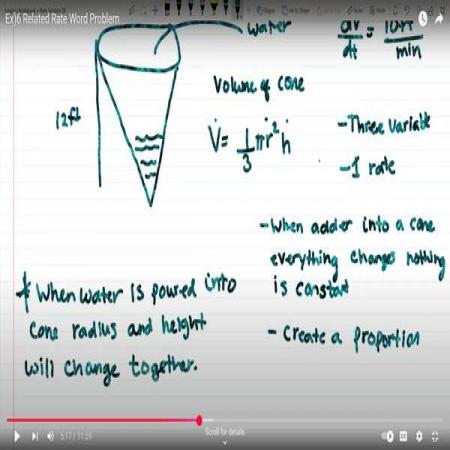 Ex)6 Related Rate Word Problem
water
dv/dt = 10ft/min
Volume of cone
12ft
V = 1/3 πr²h
-Three Variable
-1 rate
-When adder into a cone
everything changes nothing
is constant
* When water is poured into
cone radius and height
will change together.
- Create a proportion
5:17 / 11:59
Scroll for details